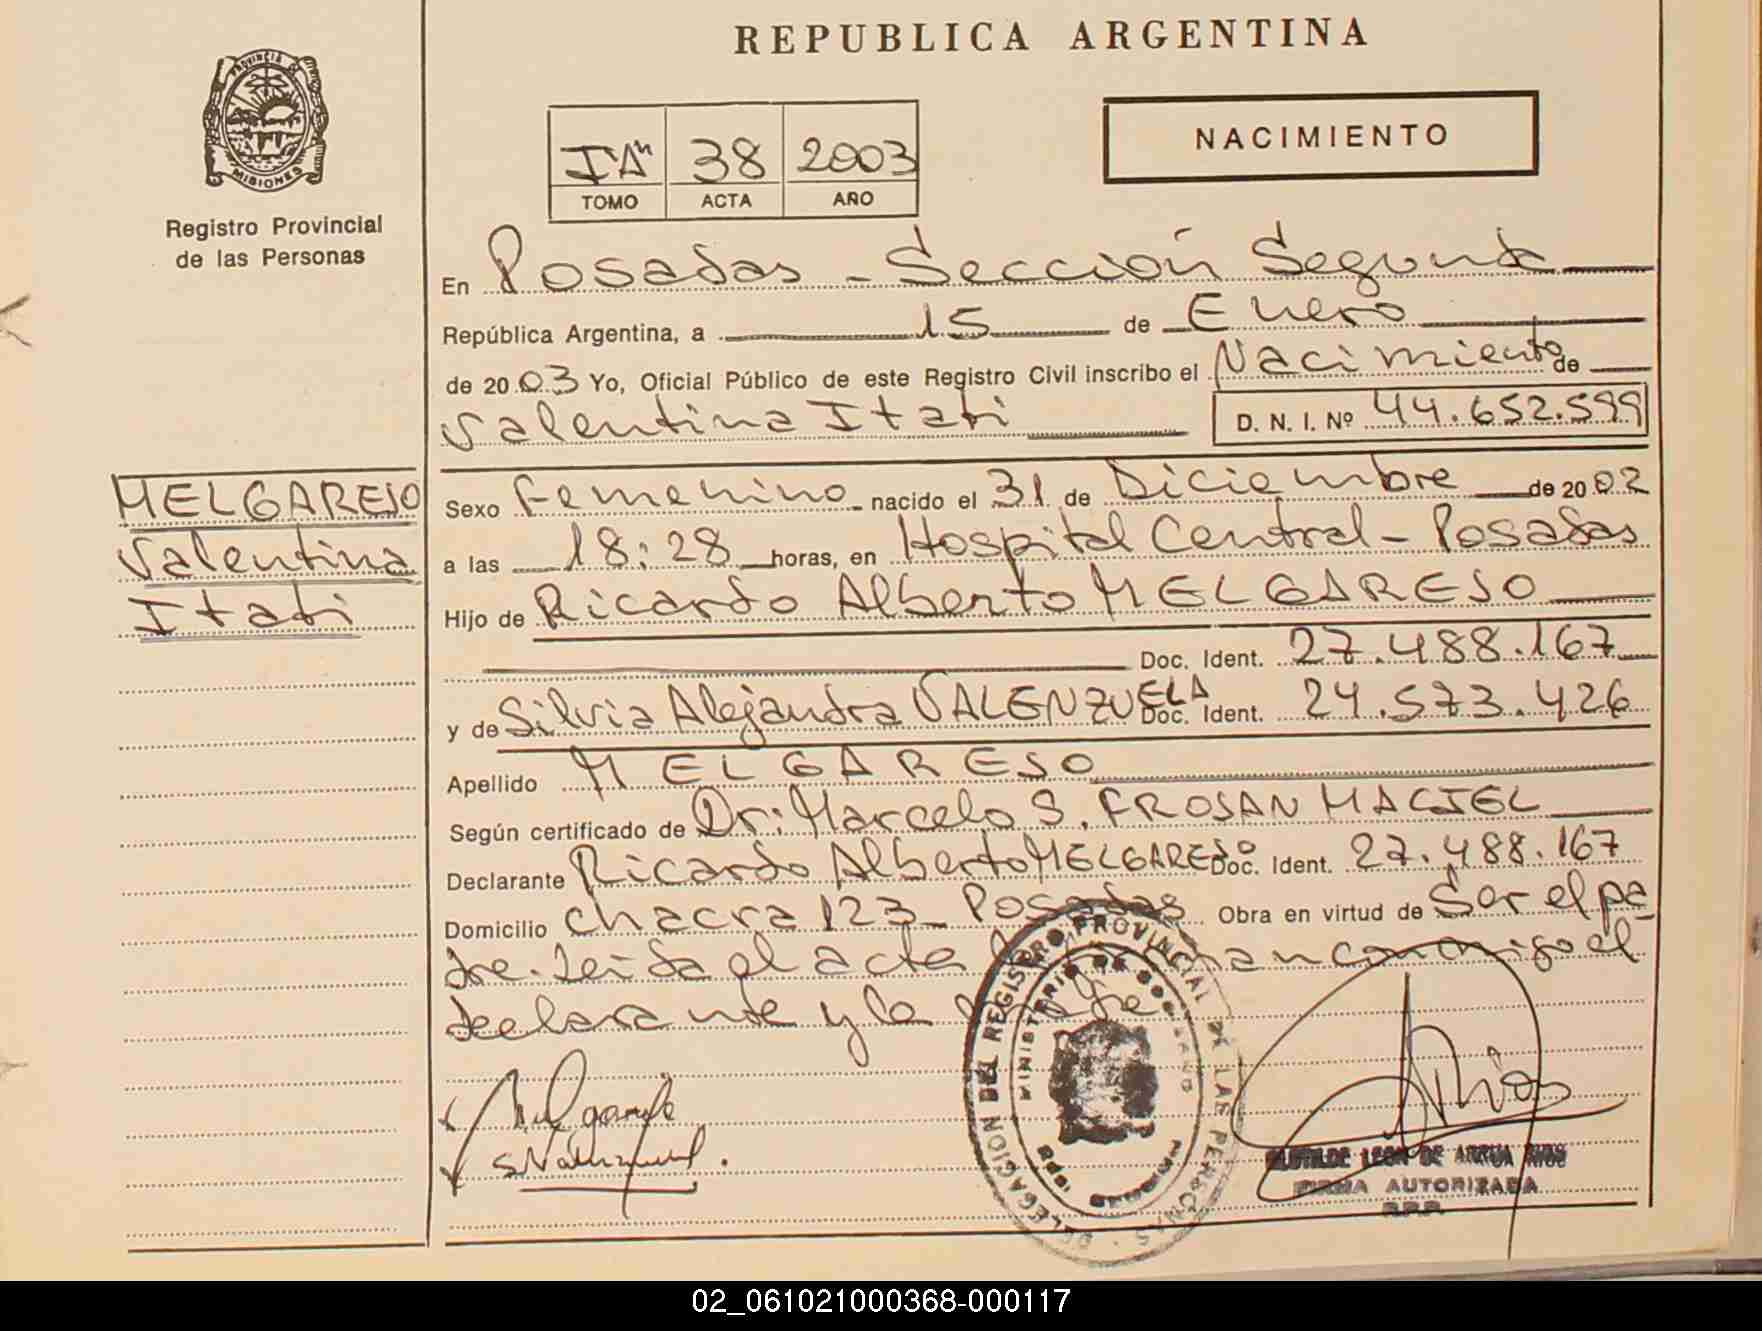 REPUBLICA ARGENTINA
PROVINCIA DE
MISIONES
Registro Provincial
de las Personas
38 2003
TOMO ACTA AÑO
NACIMIENTO
En Posadas - Sección Segunda
República Argentina, a 15 de Enero
de 2003 Yo, Oficial Público de este Registro Civil inscribo el Nacimiento de
Valentina Itati D. N. I. Nº 44.652.599
MELGAREJO
Valentina
Itati
Sexo Femenino nacido el 31 de Diciembre de 2002
a las 18:28 horas, en Hospital Central - Posadas
Hijo de Ricardo Alberto MELGAREJO
Doc. Ident. 27.488.167
y de Silvia Alejandra VALENZUELA Doc. Ident. 24.573.426
Apellido MELGAREJO
Según certificado de Dr: Marcelo S. FROSAN MACIEL
Declarante Ricardo Alberto MELGAREJO Doc. Ident. 27.488.167
Domicilio Chacra 123 Posadas Obra en virtud de Ser el pa
dre. Leida el acta conmigo el
declarante y la madre
DELEGACION DEL REGISTRO PROVINCIAL DE LAS PERSONAS
MINISTERIO DE GOBIERNO
LEON DE ARRUA RIOS
FIRMA AUTORIZADA
R.P.P.
02_061021000368-000117